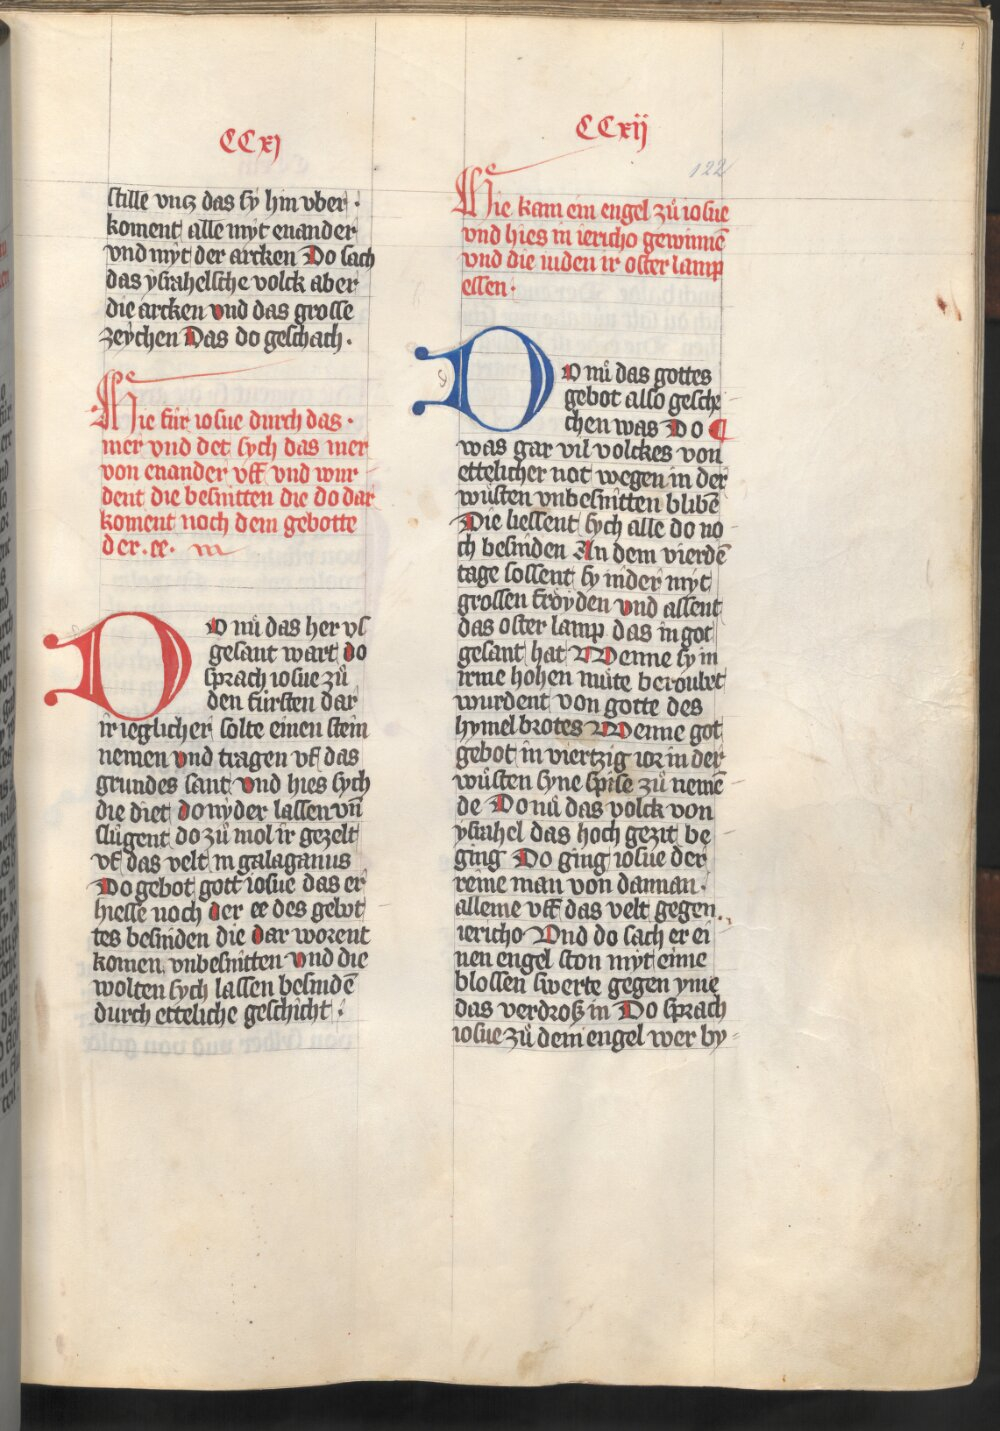 CCxj
stille vncz das sÿ hin vber ·
koment alle mÿt enander
vnd mÿt der arcken Do sach
das ÿsrahelsche volck aber
die arcken vnd das grosse
zeÿchen Das do geschach ·
Hie fůr iosue durch das ·
mer vnd det sych das mer
von enander vff vnd wur
dent die besnitten die do dar
koment noch dem gebotte
der · ee ·
Do nů das her vs
gesant wart do
sprach iosue zů
den fürsten dar
ir ieglicher solte einen stein
nemen vnd tragen vf das
grundes sant vnd hies sych
die diet do nyder lassen vn̄
slůgent do zů mol ir gezelt
vf das velt in galaganus
Do gebot gott iosue das er
hiesse noch der ee des gebot
tes besniden die dar worent
komen vnbesnitten vnd die
wolten sych lassen besnidē
durch etteliche geschicht :
CCxij
122
Hie kam ein engel zů iosue
vnd hies in iericho gewinnē
vnd die iuden ir oster lamp
essen ·
Do nů das gottes
gebot also gesche
chen was Do
was gar vil volckes von
ettelicher not wegen in der
wůsten vnbesnitten blibē
Die liessent sych alle do no
ch besniden An dem vierdē
tage sossent sy nider myt
grossen fröyden vnd assent
das oster lamp das in got
gesant hat Wenne sy in
irme hohen můte beroubet
wurdent von gotte des
hymelbrotes Wenne got
gebot in viertzig ior in der
wůsten syne spise zů nemē
de Do nů das volck von
ysrahel das hoch gezit be
ging Do ging iosue der
reine man von dannan ·
alleine vff das velt gegen
iericho Vnd do sach er ei
nen engel ston myt eime
blossen swerte gegen yme
das verdroß in Do sprach
iosue zů dem engel wer by